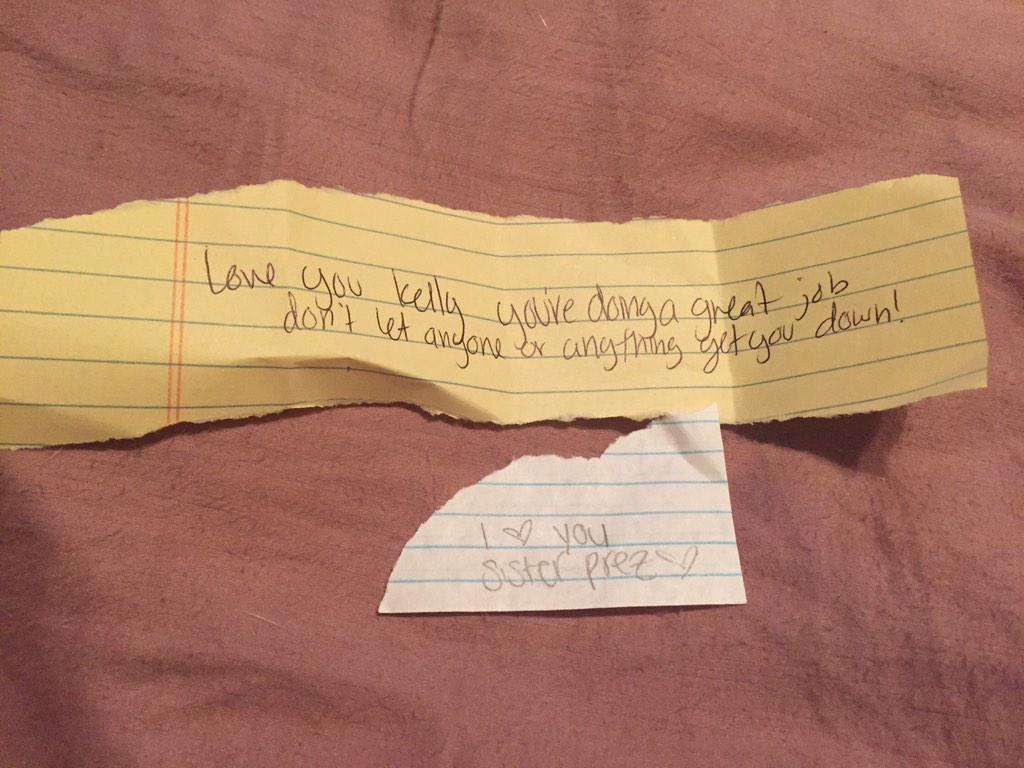 Love you kelly you're doing a great job
don't let anyone or anything get you down!
I ♡ you
sister prez ♡